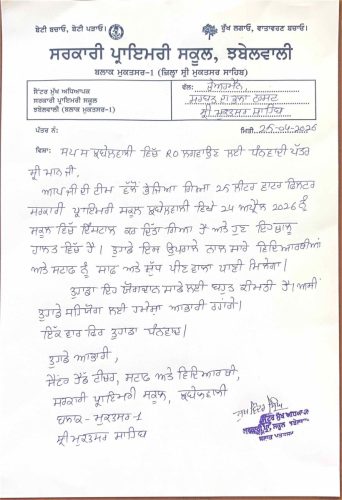 ਬੇਟੀ ਬਚਾਓ, ਬੇਟੀ ਪੜਾਓ।
ਰੁੱਖ ਲਗਾਓ, ਵਾਤਾਵਰਣ ਬਚਾਓ।
ਸਰਕਾਰੀ ਪ੍ਰਾਇਮਰੀ ਸਕੂਲ, ਝਬੇਲਵਾਲੀ
ਬਲਾਕ ਮੁਕਤਸਰ-1 (ਜ਼ਿਲ੍ਹਾ ਸ੍ਰੀ ਮੁਕਤਸਰ ਸਾਹਿਬ)
ਸੈਂਟਰ ਮੁੱਖ ਅਧਿਆਪਕ
ਸਰਕਾਰੀ ਪ੍ਰਾਇਮਰੀ ਸਕੂਲ
ਝਬੇਲਵਾਲੀ (ਬਲਾਕ ਮੁਕਤਸਰ-1)
ਵੱਲ: ਚੇਅਰਮੈਨ,
ਸਰਬੱਤ ਦਾ ਭਲਾ ਟਰਸਟ
ਸ੍ਰੀ ਮੁਕਤਸਰ ਸਾਹਿਬ
ਪੱਤਰ ਨੰ:
ਮਿਤੀ: 25-04-2026
ਵਿਸ਼ਾ: ਸਪਸ ਝਬੇਲਵਾਲੀ ਵਿੱਚ RO ਲਗਵਾਉਣ ਲਈ ਧੰਨਵਾਦੀ ਪੱਤਰ
ਸ੍ਰੀ ਮਾਨ ਜੀ,
ਆਪ ਜੀ ਦੀ ਟੀਮ ਵੱਲੋਂ ਭੇਜਿਆ ਗਿਆ 25 ਲੀਟਰ ਵਾਟਰ ਫਿਲਟਰ
ਸਰਕਾਰੀ ਪ੍ਰਾਇਮਰੀ ਸਕੂਲ ਝਬੇਲਵਾਲੀ ਵਿਖੇ 24 ਅਪ੍ਰੈਲ 2026 ਨੂੰ
ਸਕੂਲ ਵਿੱਚ ਇੰਸਟਾਲ ਕਰ ਦਿੱਤਾ ਗਿਆ ਹੈ ਅਤੇ ਹੁਣ ਇਹ ਚਾਲੂ
ਹਾਲਤ ਵਿੱਚ ਹੈ। ਤੁਹਾਡੇ ਇਸ ਉਪਰਾਲੇ ਨਾਲ ਸਾਰੇ ਵਿਦਿਆਰਥੀਆਂ
ਅਤੇ ਸਟਾਫ ਨੂੰ ਸਾਫ ਅਤੇ ਸ਼ੁੱਧ ਪੀਣ ਵਾਲਾ ਪਾਣੀ ਮਿਲੇਗਾ।
ਤੁਹਾਡਾ ਇਹ ਯੋਗਦਾਨ ਸਾਡੇ ਲਈ ਬਹੁਤ ਕੀਮਤੀ ਹੈ। ਅਸੀਂ
ਤੁਹਾਡੇ ਸਹਿਯੋਗ ਲਈ ਹਮੇਸ਼ਾ ਆਭਾਰੀ ਰਹਾਂਗੇ।
ਇੱਕ ਵਾਰ ਫਿਰ ਤੁਹਾਡਾ ਧੰਨਵਾਦ।
ਤੁਹਾਡੇ ਆਭਾਰੀ,
ਸੈਂਟਰ ਹੈੱਡ ਟੀਚਰ, ਸਟਾਫ ਅਤੇ ਵਿਦਿਆਰਥੀ,
ਸਰਕਾਰੀ ਪ੍ਰਾਇਮਰੀ ਸਕੂਲ, ਝਬੇਲਵਾਲੀ
ਬਲਾਕ - ਮੁਕਤਸਰ-1
ਸ੍ਰੀ ਮੁਕਤਸਰ ਸਾਹਿਬ
ਸੈਂਟਰ ਮੁੱਖ ਅਧਿਆਪਕ
ਸਰਕਾਰੀ ਪ੍ਰਾ. ਸਕੂਲ ਝਬੇਲਵਾਲੀ